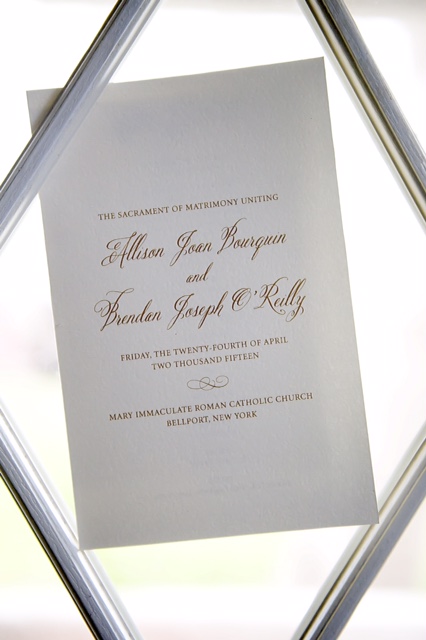 THE SACRAMENT OF MATRIMONY UNITING
Allison Joan Bourquin
and
Brendan Joseph O'Reilly
FRIDAY, THE TWENTY-FOURTH OF APRIL
TWO THOUSAND FIFTEEN
MARY IMMACULATE ROMAN CATHOLIC CHURCH
BELLPORT, NEW YORK